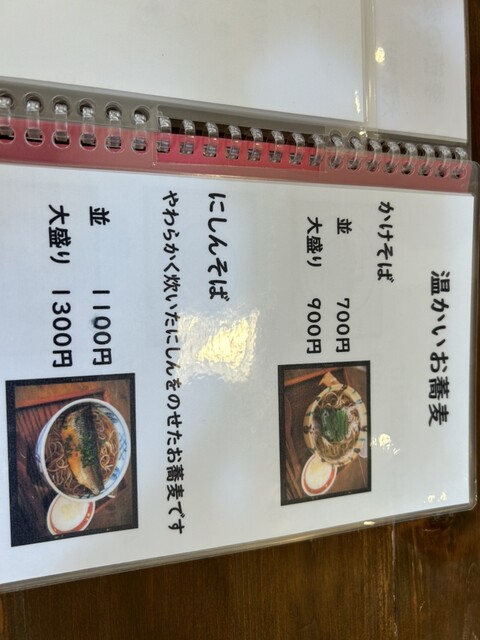 温かいお蕎麦
かけそば
並 700円
大盛り 900円
にしんそば
やわらかく炊いたにしんをのせたお蕎麦です
並 1100円
大盛り 1300円